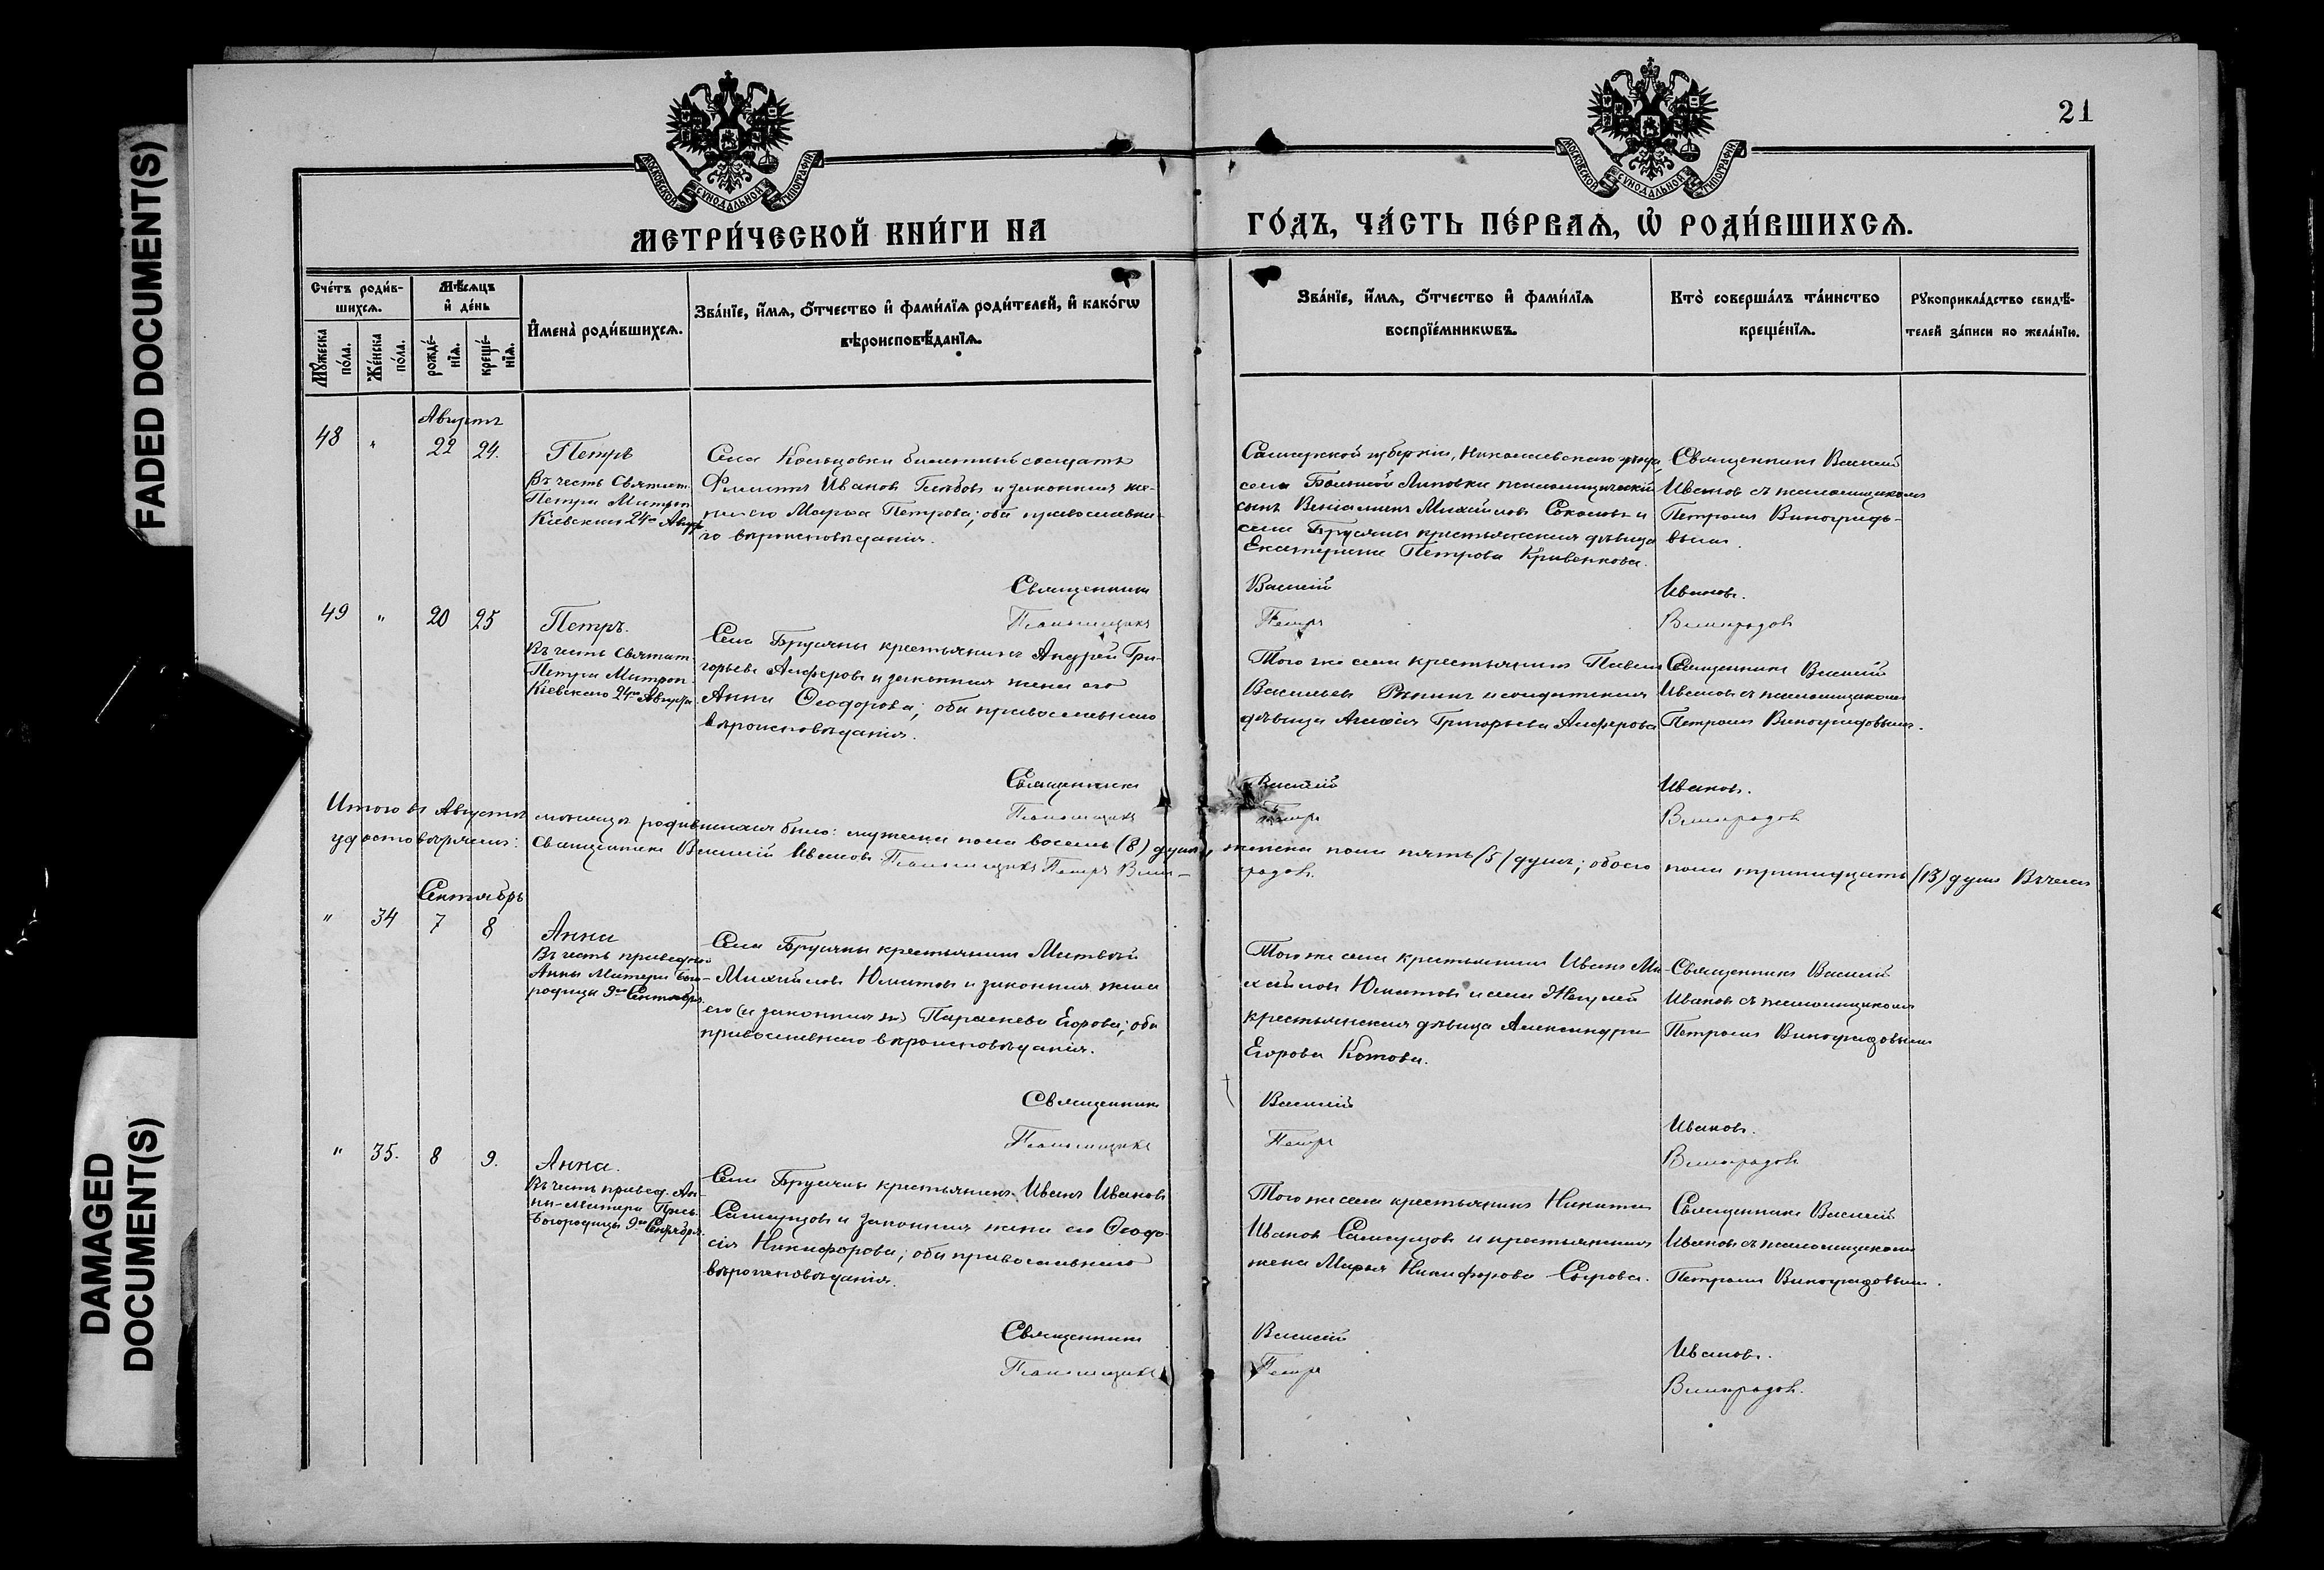 FADED DOCUMENT(S)
DAMAGED
DOCUMENT(S)
21
МОСКОВСКОЙ СѴНОДАЛЬНОЙ ТИПОГРАФІИ
МОСКОВСКОЙ СѴНОДАЛЬНОЙ ТИПОГРАФІИ
МЕТРИ́ЧЕСКОЙ КНИ́ГИ НА
ГО́ДЪ, ЧА́СТЬ ПЕ́РВАѦ, Ѡ РОДИ́ВШИХСѦ.
Сче́тъ роди́в-
шихсѧ.
Мꙋ́жеска
по́ла.
Же́нска
по́ла.
Мѣ́сѧцъ
и҆ де́нь
рожде́-
нїѧ.
креще́-
нїѧ.
И҆мена̀ роди́вшихсѧ.
Зва́нїе, и҆́мѧ, ѻ҆́тчество и҆ фами́лїѧ роди́телей, и҆ како́гѡ
вѣроисповѣ́данїѧ.
Зва́нїе, и҆́мѧ, ѻ҆́тчество и҆ фами́лїѧ
воспрїе́мникѡвъ.
Кто̀ соверша́лъ та́инство
креще́нїѧ.
Рꙋкоприкла́дство свидѣ́-
телей за́писи по жела́нїю.
Августъ
48 " 22 24.
Петръ
Въ честь Святит.
Петра Митроп.
Кіевскаго 24го Авгус.
Села Кольцовки билетный солдатъ
Филиппъ Ивановъ Глебовъ и законная же-
на его Марѳа Петрова; оба православна-
го вѣроисповѣданія.
Самарской губерніи, Николаевскаго уѣзда,
села Большой Липовки псаломщическій
сынъ Веніаминъ Михайловъ Соколовъ и
села Брусяны крестьянская дѣвица
Екатерина Петрова Кривенкова.
Священникъ Василій
Ивановъ съ псаломщикомъ
Петромъ Виноградо-
вымъ.
Священникъ Василій Ивановъ.
Псаломщикъ Петръ Виноградовъ
49 " 20 25
Петръ.
Въ честь Святит.
Петра Митроп.
Кіевскаго 24го Августа.
Села Брусяны крестьянинъ Андрей Гри-
горьевъ Алферовъ и законная жена его
Анна Ѳеодорова; оба православнаго
вѣроисповѣданія.
Того же села крестьянинъ Павелъ
Васильевъ Рѣпинъ и солдатская
дѣвица Агафія Григорьева Алферова
Священникъ Василій
Ивановъ съ псаломщикомъ
Петромъ Виноградовымъ.
Священникъ Василій Ивановъ.
Псаломщикъ Петръ Виноградовъ
Итого въ Августѣ мѣсяцѣ родившихся было: мужеска пола восемь (8) душъ, женска пола пять (5) душъ; обоего пола тринадцать (13) душъ Въ чемъ
удостовѣряемъ: Священникъ Василій Ивановъ Псаломщикъ Петръ Вино-
градовъ.
Сентябрь
" 34 7 8
Анна
Въ честь праведной
Анны Матери Бого-
родицы 9го Сентября.
Села Брусяны крестьянинъ Матвѣй
Михайловъ Юматовъ и законная жена
его (и законная ж) Параскева Егорова; оба
православнаго вѣроисповѣданія.
Того же села крестьянинъ Иванъ Ми-
хайловъ Юматовъ и села Жегулей
крестьянская дѣвица Александра
Егорова Котова.
Священникъ Василій
Ивановъ съ псаломщикомъ
Петромъ Виноградовымъ
Священникъ Василій Ивановъ.
Псаломщикъ Петръ Виноградовъ
" 35. 8 9.
Анна.
Въ честь правед. Ан-
ны-Матери Прес.
Богородицы 9го Сентября.
Села Брусяны крестьянинъ Иванъ Ивановъ
Самсуцовъ и законная жена его Ѳеодо-
сія Никифорова; оба православнаго
вѣроисповѣданія.
Того же села крестьянинъ Никита
Ивановъ Самсуцовъ и крестьянская
жена Марья Никифорова Сырова.
Священникъ Василій
Ивановъ съ псаломщикомъ
Петромъ Виноградовымъ.
Священникъ Василій Ивановъ.
Псаломщикъ Петръ Виноградовъ.